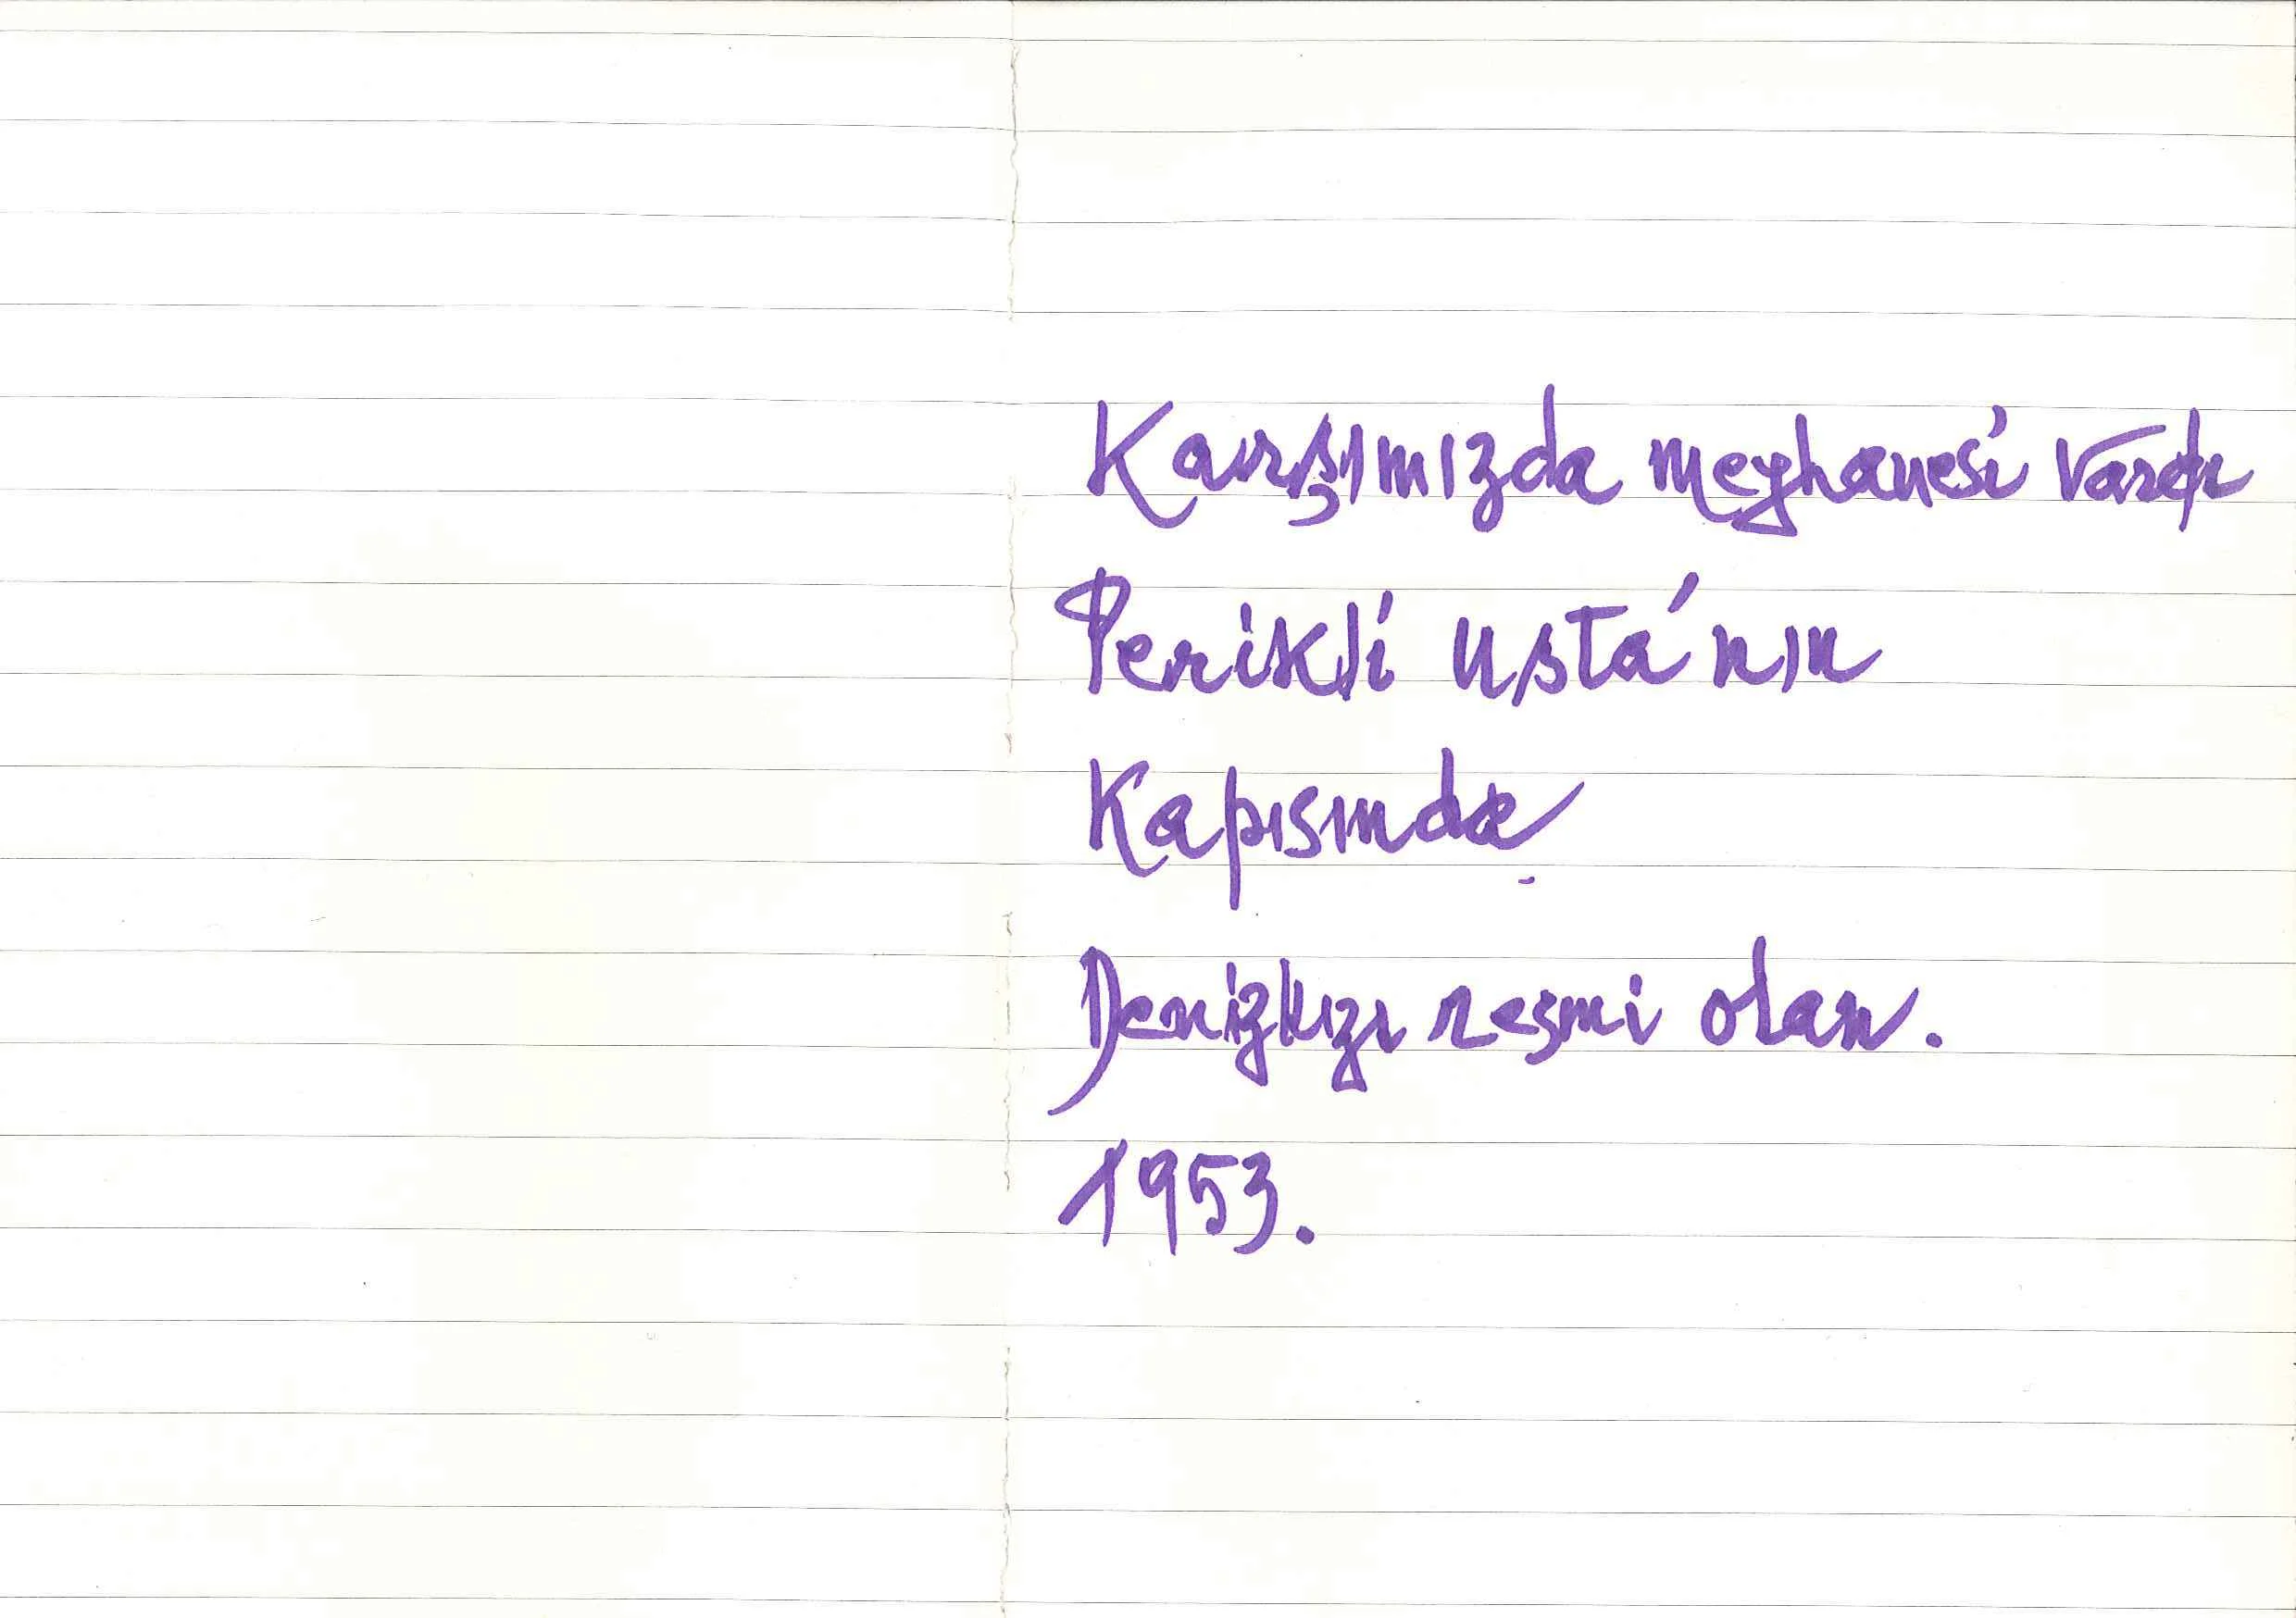 Karşımızda meyhanesi vardı
Perikli usta'nın
Kapısında
Denizkızı resmi olan.
1953.